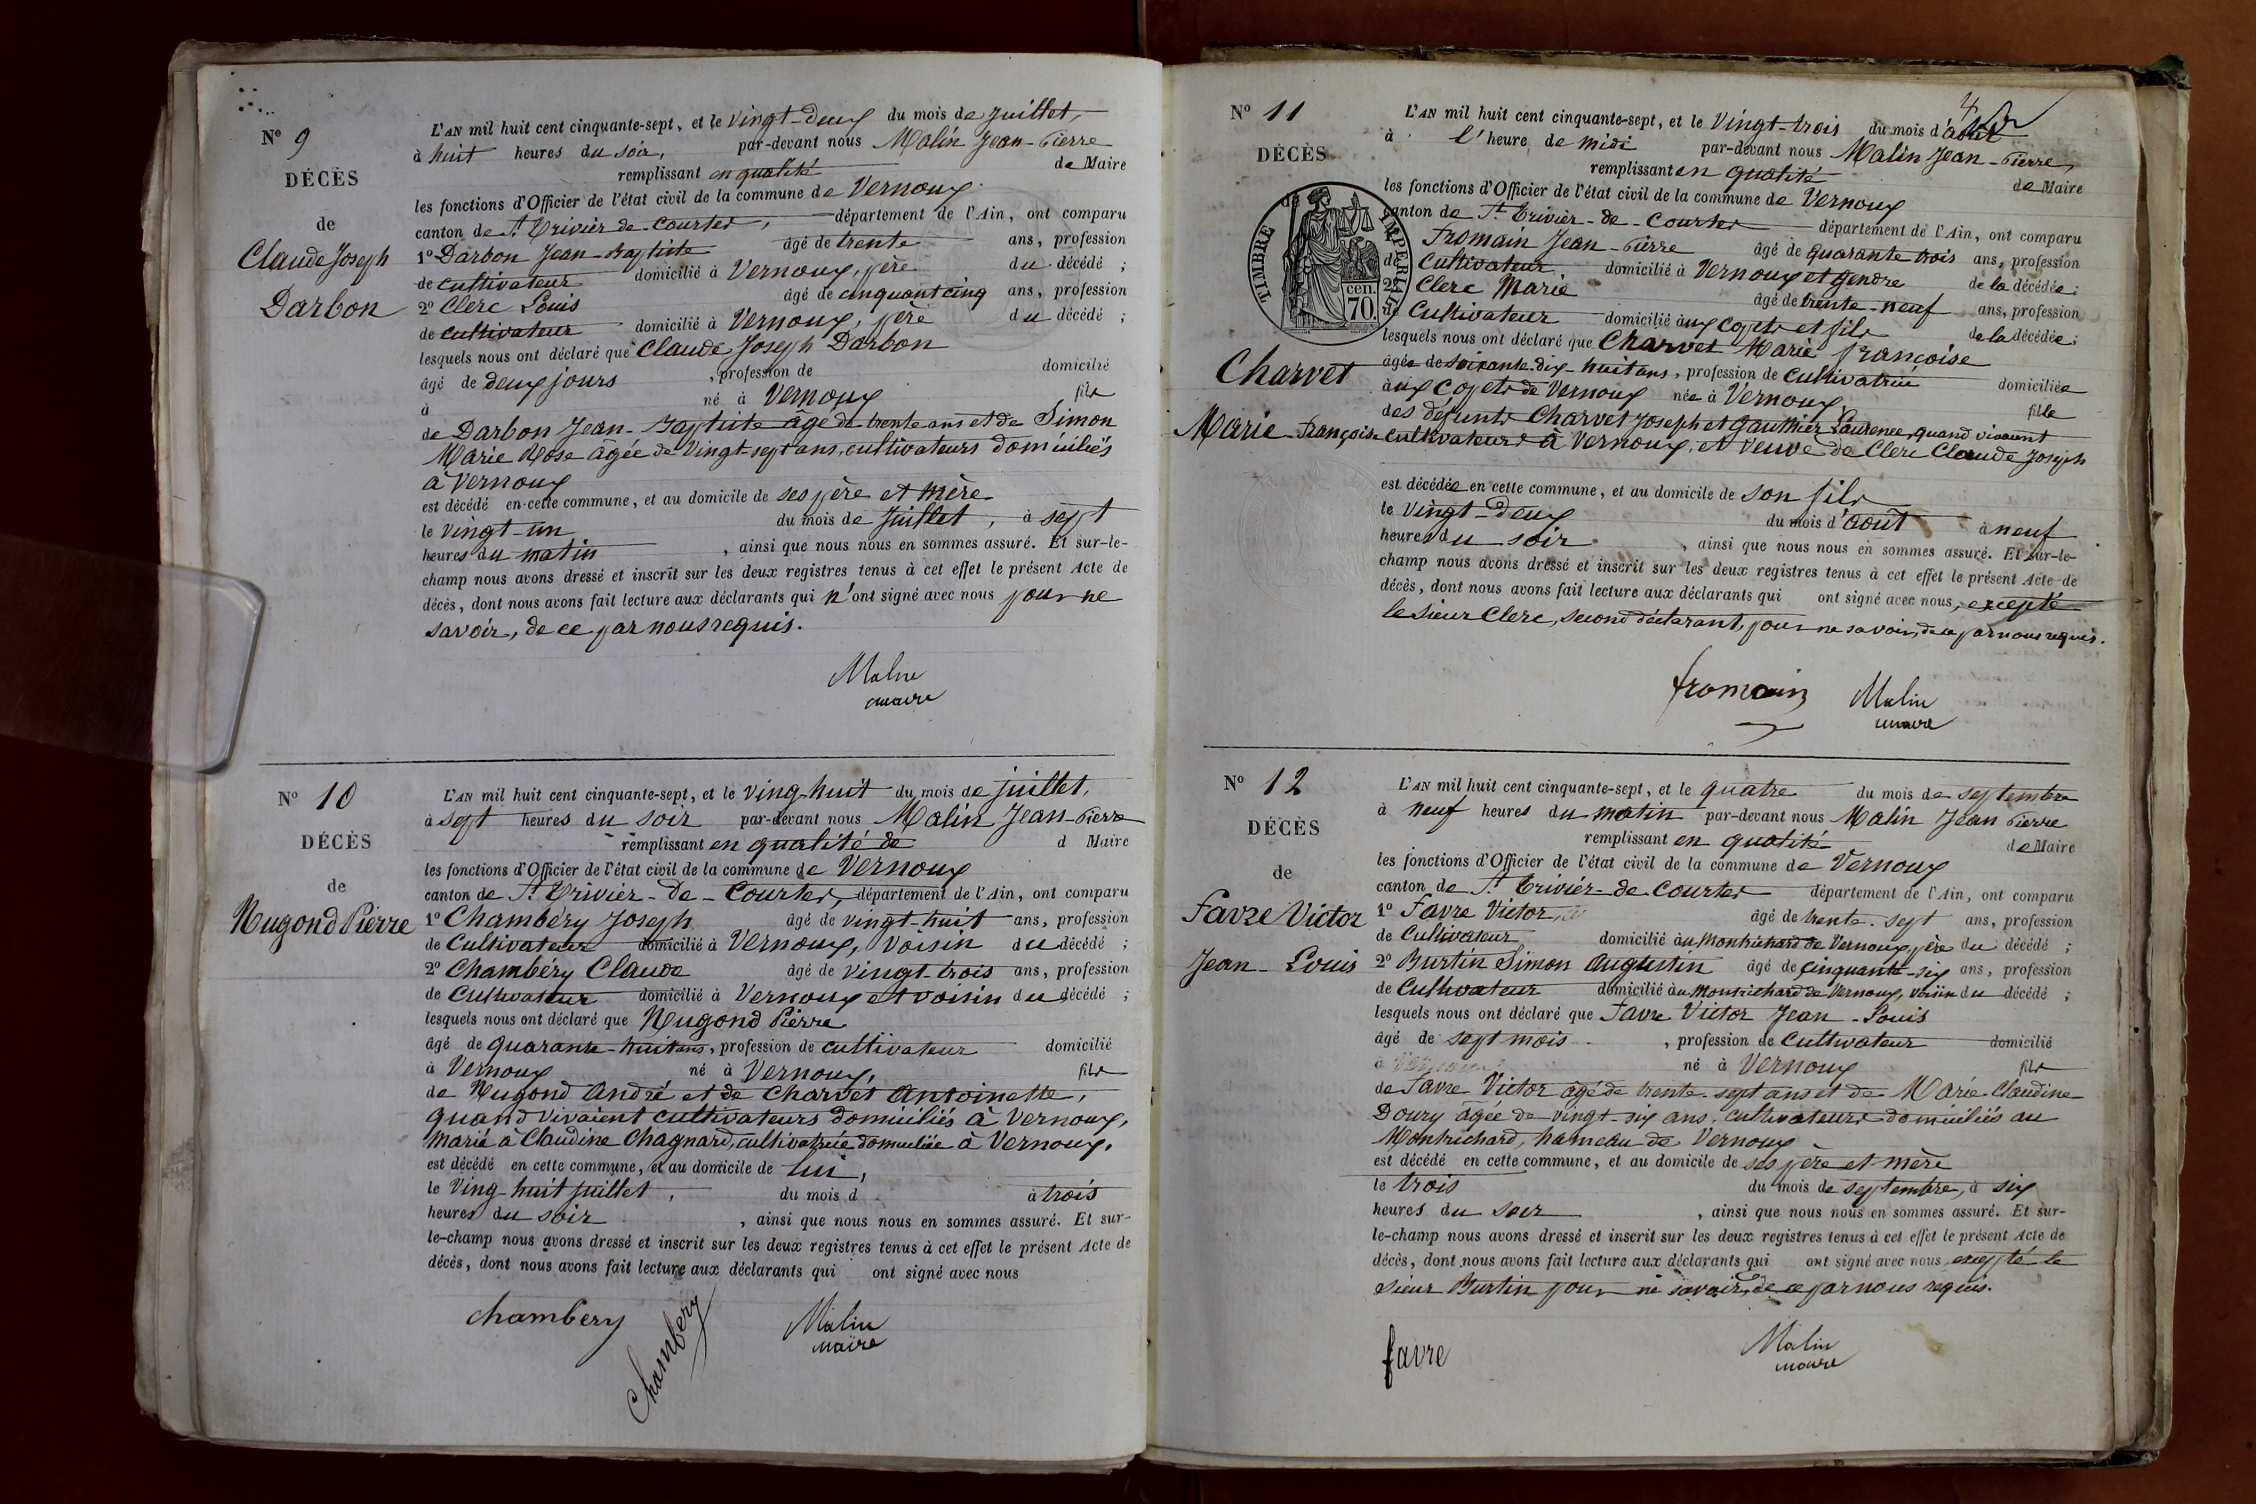 Nº 9
DÉCÈS
de
Claude Joseph
Darbon
L'AN mil huit cent cinquante-sept, et le vingt-deux du mois de Juillet,
à huit heures du soir, par-devant nous Malin Jean-Pierre
remplissant en qualité de Maire
les fonctions d'Officier de l'état civil de la commune de Vernoux
canton de St Trivier-de-Courtes, département de l'Ain, ont comparu
1º Darbon Jean-Baptiste âgé de trente ans, profession
de cultivateur domicilié à Vernoux, père du décédé ;
2º Clerc Louis âgé de cinquant cinq ans, profession
de cultivateur domicilié à Vernoux, père du décédé ;
lesquels nous ont déclaré que Claude Joseph Darbon
âgé de deux jours , profession de domicilié
à né à Vernoux fils
de Darbon Jean-Baptiste âgé de trente ans et de Simon
Marie Rose âgée de Vingt-sept ans, cultivateurs domiciliés
à Vernoux
est décédé en cette commune, et au domicile de ses père et mère
le vingt-un du mois de Juillet, à sept
heures du matin , ainsi que nous nous en sommes assuré. Et sur-le-
champ nous avons dressé et inscrit sur les deux registres tenus à cet effet le présent Acte de
décès, dont nous avons fait lecture aux déclarants qui n'ont signé avec nous pour ne
savoir, de ce par nous requis.
Malin
maire
Nº 10
DÉCÈS
de
Nugond Pierre
L'AN mil huit cent cinquante-sept, et le ving-huit du mois de juillet,
à sept heures du soir par-devant nous Malin Jean-Pierre
remplissant en qualité de d Maire
les fonctions d'Officier de l'état civil de la commune de Vernoux
canton de St Trivier-de-Courtes, département de l'Ain, ont comparu
1º Chambéry Joseph âgé de vingt-huit ans, profession
de Cultivateur domicilié à Vernoux, voisin du décédé ;
2º Chambéry Claude âgé de vingt-trois ans, profession
de Cultivateur domicilié à Vernoux et voisin du décédé ;
lesquels nous ont déclaré que Nugond Pierre
âgé de quarante-huit ans, profession de cultivateur domicilié
à Vernoux né à Vernoux, fils
de Nugond André et de Charvet Antoinette,
quand vivaient cultivateurs domiciliés à Vernoux,
marié à Claudine Chagnard, cultivatrice domiciliée à Vernoux,
est décédé en cette commune, et au domicile de lui,
le Ving-huit juillet, du mois d à trois
heures du soir , ainsi que nous nous en sommes assuré. Et sur-
le-champ nous avons dressé et inscrit sur les deux registres tenus à cet effet le présent Acte de
décès, dont nous avons fait lecture aux déclarants qui ont signé avec nous
chambery
Chambery
Malin
maire
Nº 11
DÉCÈS
TIMBRE IMPERIAL
cen.
70.
Charvet
Marie-françoise
4
L'AN mil huit cent cinquante-sept, et le Vingt-trois du mois d'août
à l'heure de midi par-devant nous Malin Jean-Pierre,
remplissant en qualité de Maire
les fonctions d'Officier de l'état civil de la commune de Vernoux
canton de St Trivier-de-Courtes département de l'Ain, ont comparu
Fromain Jean-Pierre âgé de quarante trois ans, profession
de Cultivateur domicilié à Vernoux et gendre de la décédée ;
2º Clerc Marie âgé de trente-neuf ans, profession
de Cultivateur domicilié aux Copets et fils de la décédée ;
lesquels nous ont déclaré que Charvet Marie françoise
âgée de soixante-dix-huit ans, profession de cultivatrice domiciliée
aux Copets de Vernoux née à Vernoux fille
des défunts Charvet Joseph et Gauthier Laurence, quand vivaient
cultivateurs à Vernoux, et veuve de Clerc Claude Joseph
est décédée en cette commune, et au domicile de son fils
le Vingt-deux du mois d'août à neuf
heures du soir , ainsi que nous nous en sommes assuré. Et sur-le-
champ nous avons dressé et inscrit sur les deux registres tenus à cet effet le présent Acte de
décès, dont nous avons fait lecture aux déclarants qui ont signé avec nous, excepté
le sieur Clerc, second déclarant, pour ne savoir, de ce par nous requis.
fromain
Malin
maire
Nº 12
DÉCÈS
de
Favre Victor
Jean-Louis
L'AN mil huit cent cinquante-sept, et le quatre du mois de septembre
à neuf heures du matin par-devant nous Malin Jean Pierre
remplissant en qualité de Maire
les fonctions d'Officier de l'état civil de la commune de Vernoux
canton de St Trivier-de-Courtes département de l'Ain, ont comparu
1º Favre Victor âgé de trente-sept ans, profession
de Cultivateur domicilié au Montrichard de Vernoux, père du décédé ;
2º Burtin Simon Augustin âgé de cinquante-six ans, profession
de Cultivateur domicilié au Montrichard de Vernoux, voisin du décédé ;
lesquels nous ont déclaré que Favre Victor Jean-Louis
âgé de sept mois , profession de Cultivateur domicilié
à né à Vernoux fils
de Favre Victor âgé de trente-sept ans et de Marie Claudine
Doury âgée de vingt-six ans, cultivateurs domiciliés au
Montrichard, hameau de Vernoux
est décédé en cette commune, et au domicile de ses père et mère
le trois du mois de septembre, à six
heures du soir , ainsi que nous nous en sommes assuré. Et sur-
le-champ nous avons dressé et inscrit sur les deux registres tenus à cet effet le présent Acte de
décès, dont nous avons fait lecture aux déclarants qui ont signé avec nous excepté le
sieur Burtin pour ne savoir, de ce par nous requis.
favre
Malin
maire